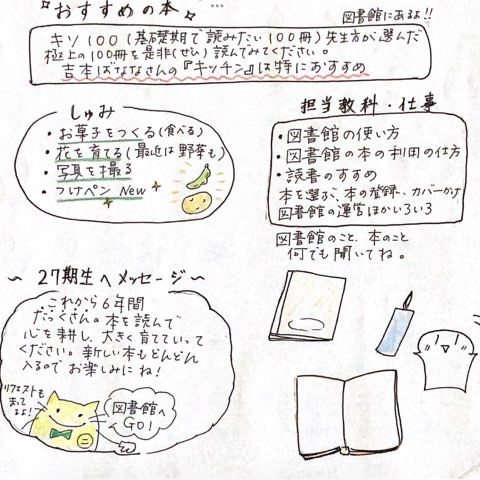 おすすめの本
図書館にあるよ!!
キソ100(基礎期で読みたい100冊)先生方が選んだ
極上の100冊を是非(ぜひ)読んでみてください。
吉本ばななさんの『キッチン』は特におすすめ
しゅみ
・お菓子をつくる(食べる)
・花を育てる(最近は野菜も)
・写真を撮る
・つけペン New
担当教科・仕事
・図書館の使い方
・図書館の本の利用の仕方
・読書のすすめ
本を選ぶ、本の登録、カバーかけ
図書館の運営ほかいろいろ
図書館のこと、本のこと
何でも聞いてね。
～27期生へメッセージ～
これから6年間
たくさんの本を読んで
心を耕し、大きく育てていって
ください。新しい本もどんどん
入るのでお楽しみにね!
リクエストも
まってるよ!
図書館へ
GO!